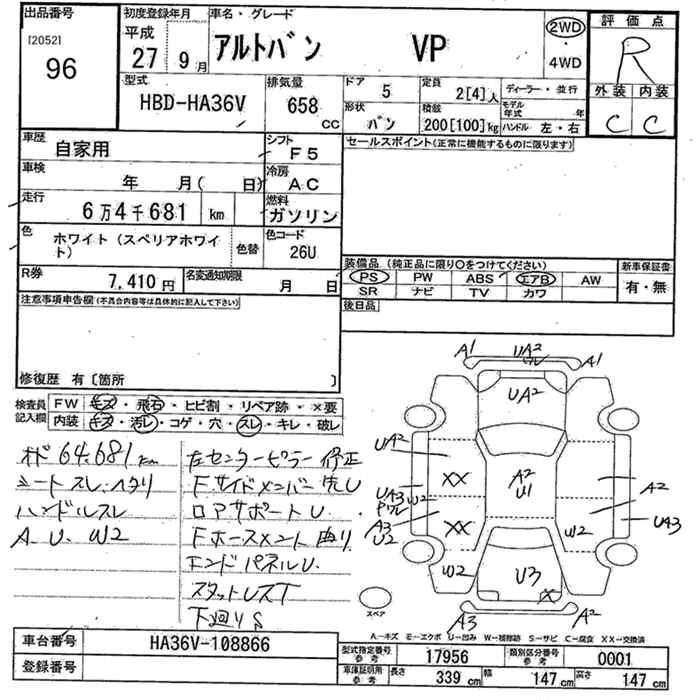 出品番号
[2052]
96
初度登録年月
平成
27 9月
車名・グレード
アルトバン VP
2WD
・
4WD
評価点
R
外装 内装
C C
型式
HBD-HA36V
排気量
658 CC
ドア 5
形状 バン
定員 2[4]人
積載 200[100]kg
ディーラー・並行
モデル年式 年
ハンドル 左・右
車歴 自家用
シフト F5
セールスポイント(正常に機能するものに限ります)
車検 年 月( 日)
冷房 AC
走行 6万4千681 km
燃料 ガソリン
色 ホワイト(スペリアホワイト)
色替
色コード 26U
R券 7,410円
名変通知期限 月 日
装備品(純正品に限り○をつけてください)
PS PW ABS エアB AW
SR ナビ TV カワ
新車保証書
有・無
後日品
注意事項申告欄(不具合内容等は具体的に記入して下さい)
修復歴 有〔箇所 〕
検査員記入欄
FW キズ・飛石・ヒビ割・リペア跡・×要
内装 キズ・汚レ・コゲ・穴・スレ・キレ・破レ
オド 64.681km
シートスレ.ヘタリ
ハンドルスレ
A. U. W2
左センターピラー修正
Fサイドメンバー先U
ロアサポートU.
Fホースメント曲り
エンドパネルU.
スタットレスT
下廻りS
A1
UA2
ワレ
A1
UA2
UA2
XX
UA3
W2
A3
U2
XX
W2
A2
U1
A2
UA3
W2
U3
X
A3
A2
スペア
A…キズ E…エクボ U…凹み W…補修跡 S…サビ C…腐食 XX…交換済
車台番号 HA36V-108866
登録番号
型式指定番号参考 17956
類別区分番号参考 0001
車庫証明用参考 長さ 339cm 幅 147cm 高さ 147cm